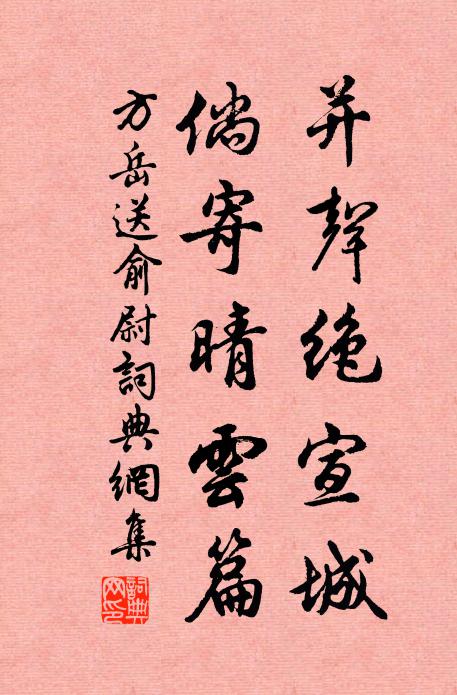 并聲絶宣城
倘寄晴雲篇
方岳送俞尉詞典網集
詞典網印